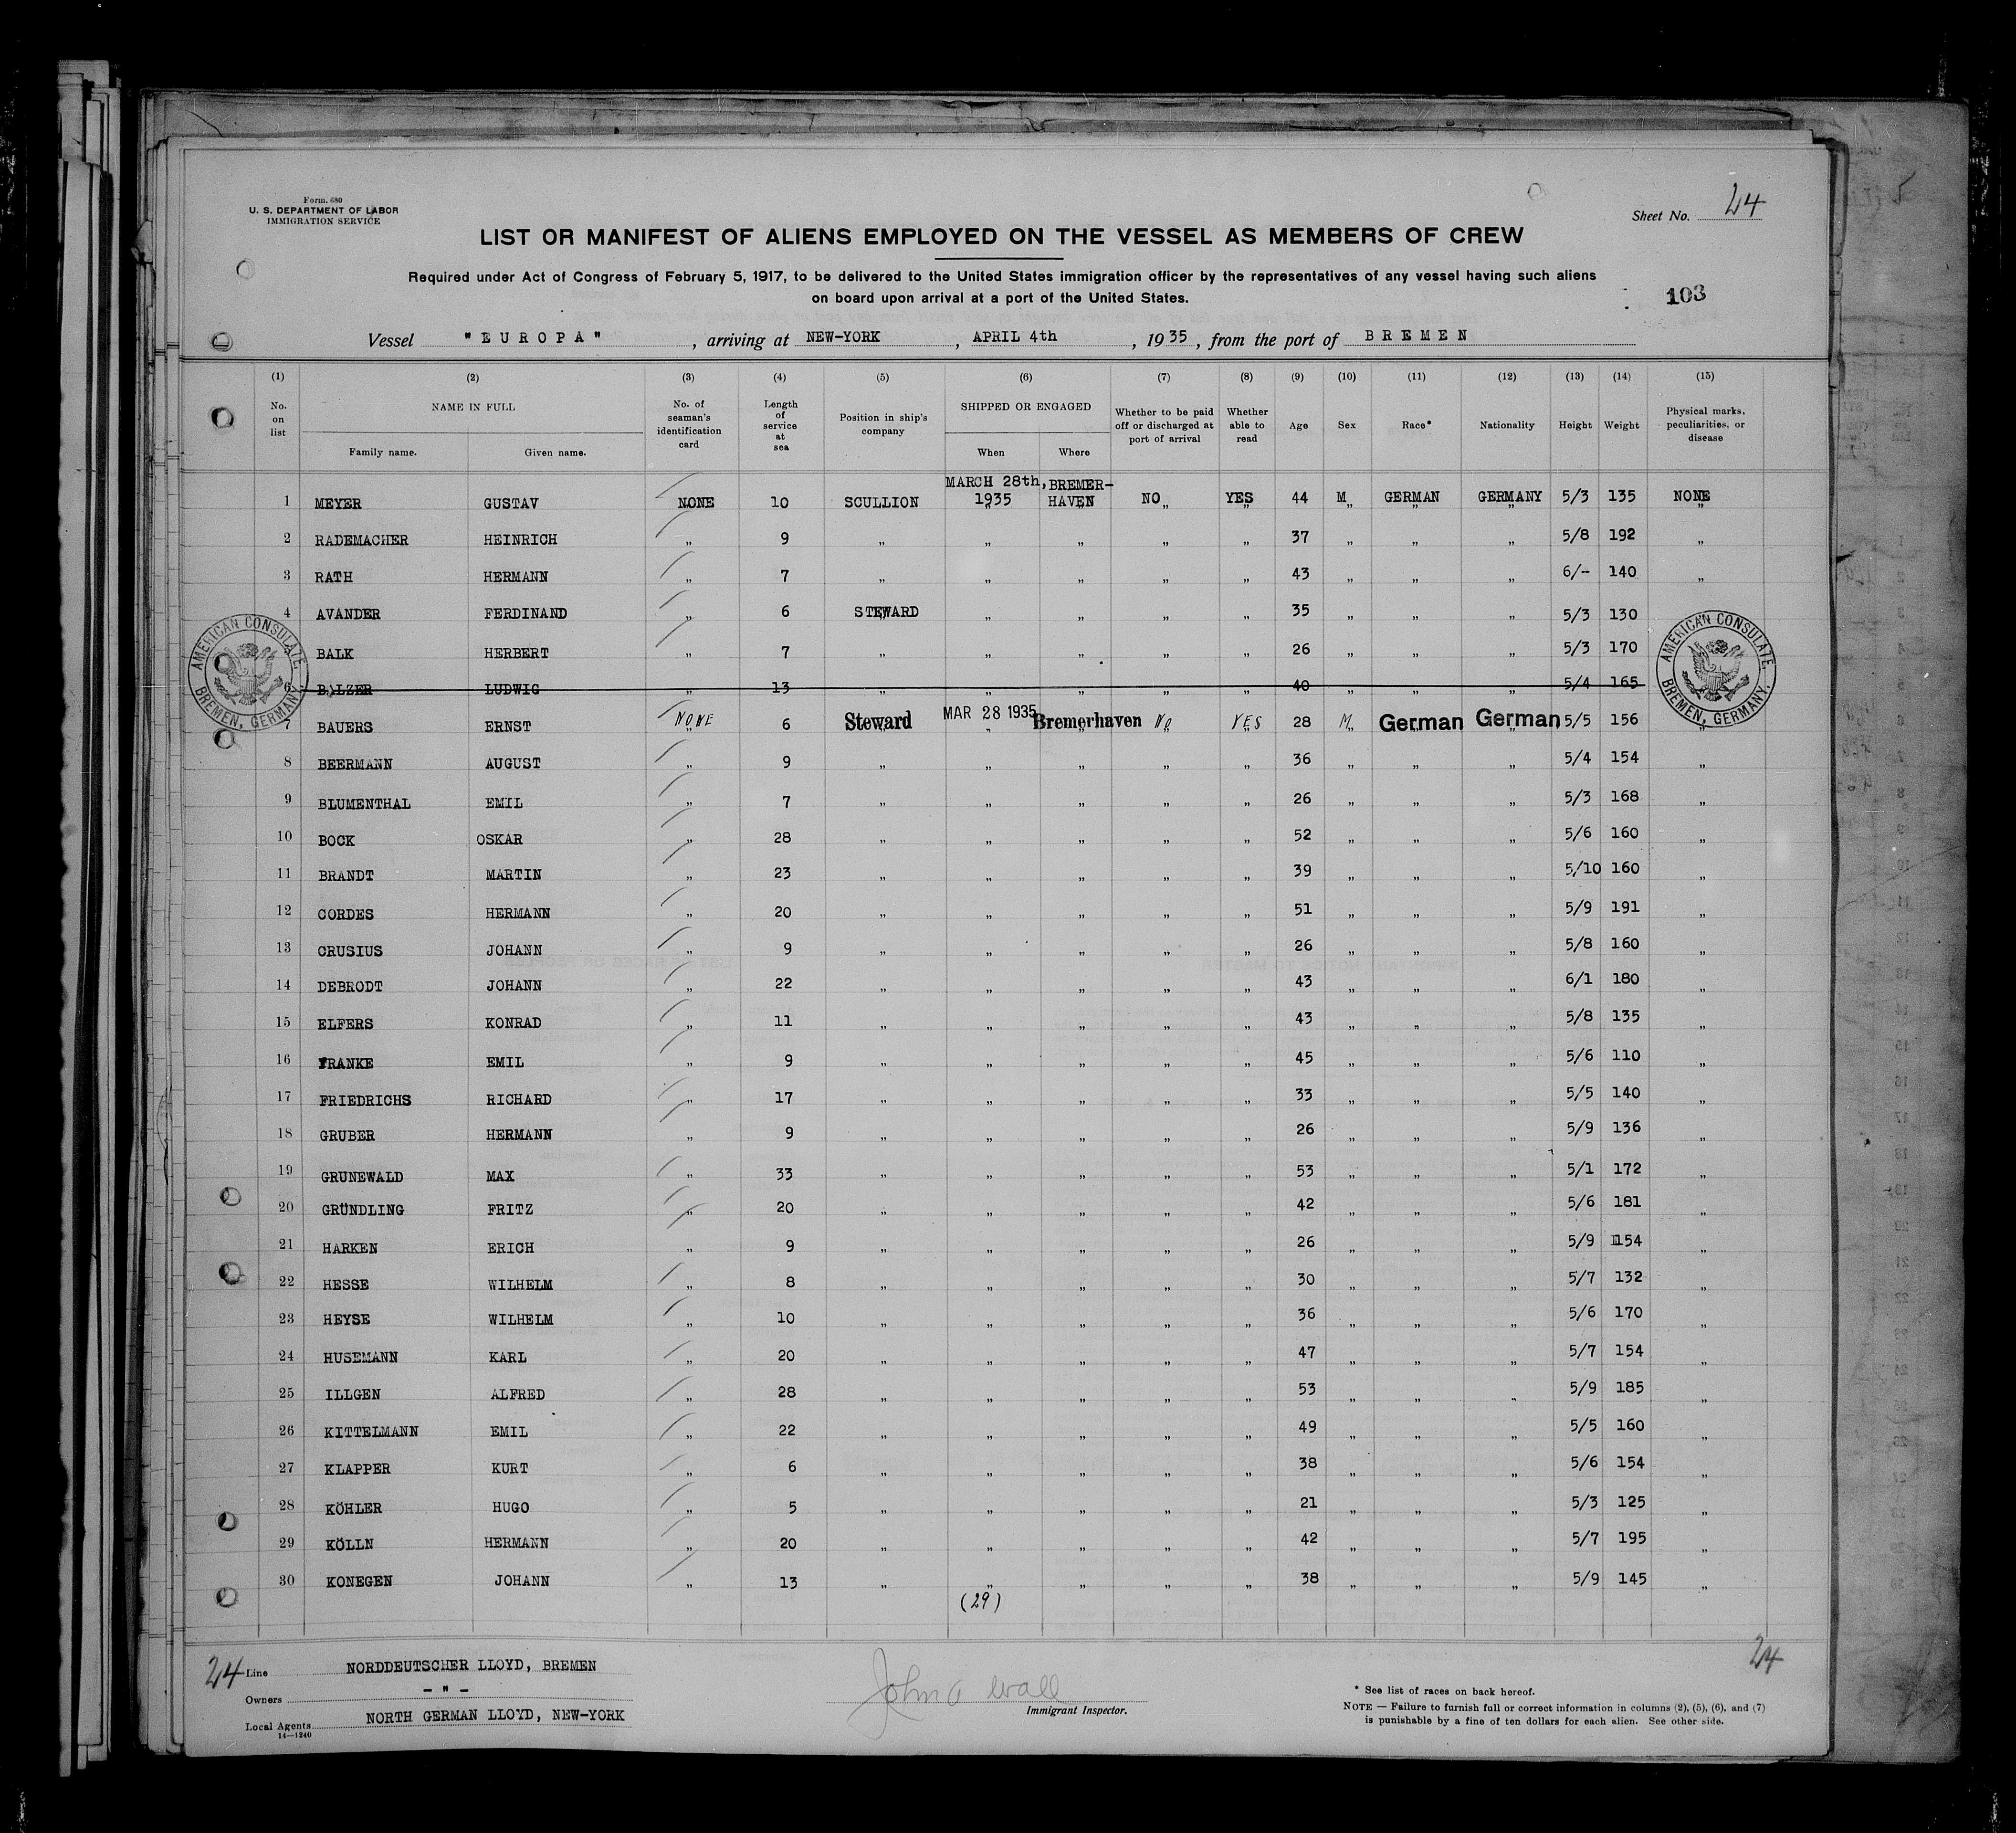 Form. 680
U. S. DEPARTMENT OF LABOR
IMMIGRATION SERVICE
Sheet No. 24
LIST OR MANIFEST OF ALIENS EMPLOYED ON THE VESSEL AS MEMBERS OF CREW
Required under Act of Congress of February 5, 1917, to be delivered to the United States immigration officer by the representatives of any vessel having such aliens
on board upon arrival at a port of the United States.
103
Vessel "EUROPA", arriving at NEW-YORK, APRIL 4th, 1935, from the port of BREMEN
(1) (2) (3) (4) (5) (6) (7) (8) (9) (10) (11) (12) (13) (14) (15)
No. on list NAME IN FULL Family name. Given name. No. of seaman's identification card Length of service at sea Position in ship's company SHIPPED OR ENGAGED When Where Whether to be paid off or discharged at port of arrival Whether able to read Age Sex Race* Nationality Height Weight Physical marks, peculiarities, or disease
1 MEYER GUSTAV NONE 10 SCULLION MARCH 28th, 1935 BREMER-HAVEN NO YES 44 M GERMAN GERMANY 5/3 135 NONE
2 RADEMACHER HEINRICH „ 9 „ „ „ „ „ 37 „ „ „ 5/8 192 „
3 RATH HERMANN „ 7 „ „ „ „ „ 43 „ „ „ 6/- 140 „
4 AVANDER FERDINAND „ 6 STEWARD „ „ „ „ 35 „ „ „ 5/3 130
BALK HERBERT „ 7 „ „ „ „ „ 26 „ „ „ 5/3 170
6 BALZER LUDWIG „ 13 „ „ „ „ „ 40 „ „ „ 5/4 165
7 BAUERS ERNST NONE 6 Steward MAR 28 1935 Bremerhaven No YES 28 M German German 5/5 156 „
8 BEERMANN AUGUST „ 9 „ „ „ „ „ 36 „ „ „ 5/4 154 „
9 BLUMENTHAL EMIL „ 7 „ „ „ „ „ 26 „ „ „ 5/3 168 „
10 BOCK OSKAR „ 28 „ „ „ „ „ 52 „ „ „ 5/6 160 „
11 BRANDT MARTIN „ 23 „ „ „ „ „ 39 „ „ „ 5/10 160 „
12 CORDES HERMANN „ 20 „ „ „ „ „ 51 „ „ „ 5/9 191 „
13 CRUSIUS JOHANN „ 9 „ „ „ „ „ 26 „ „ „ 5/8 160 „
14 DEBRODT JOHANN „ 22 „ „ „ „ „ 43 „ „ „ 6/1 180 „
15 ELFERS KONRAD „ 11 „ „ „ „ „ 43 „ „ „ 5/8 135 „
16 FRANKE EMIL „ 9 „ „ „ „ „ 45 „ „ „ 5/6 110 „
17 FRIEDRICHS RICHARD „ 17 „ „ „ „ „ 33 „ „ „ 5/5 140 „
18 GRUBER HERMANN „ 9 „ „ „ „ „ 26 „ „ „ 5/9 136 „
19 GRUNEWALD MAX „ 33 „ „ „ „ „ 53 „ „ „ 5/1 172 „
20 GRÜNDLING FRITZ „ 20 „ „ „ „ „ 42 „ „ „ 5/6 181 „
21 HARKEN ERICH „ 9 „ „ „ „ „ 26 „ „ „ 5/9 154 „
22 HESSE WILHELM „ 8 „ „ „ „ „ 30 „ „ „ 5/7 132 „
23 HEYSE WILHELM „ 10 „ „ „ „ „ 36 „ „ „ 5/6 170 „
24 HUSEMANN KARL „ 20 „ „ „ „ „ 47 „ „ „ 5/7 154 „
25 ILLGEN ALFRED „ 28 „ „ „ „ „ 53 „ „ „ 5/9 185 „
26 KITTELMANN EMIL „ 22 „ „ „ „ „ 49 „ „ „ 5/5 160 „
27 KLAPPER KURT „ 6 „ „ „ „ „ 38 „ „ „ 5/6 154 „
28 KÖHLER HUGO „ 5 „ „ „ „ „ 21 „ „ „ 5/3 125 „
29 KÖLLN HERMANN „ 20 „ „ „ „ „ 42 „ „ „ 5/7 195 „
30 KONEGEN JOHANN „ 13 „ „ „ „ „ 38 „ „ „ 5/9 145 „
(29)
AMERICAN CONSULATE BREMEN, GERMANY.
AMERICAN CONSULATE BREMEN, GERMANY.
24 Line NORDDEUTSCHER LLOYD, BREMEN
Owners - " -
Local Agents NORTH GERMAN LLOYD, NEW-YORK
14—1240
John A Wall
Immigrant Inspector.
24
* See list of races on back hereof.
NOTE — Failure to furnish full or correct information in columns (2), (5), (6), and (7)
is punishable by a fine of ten dollars for each alien. See other side.